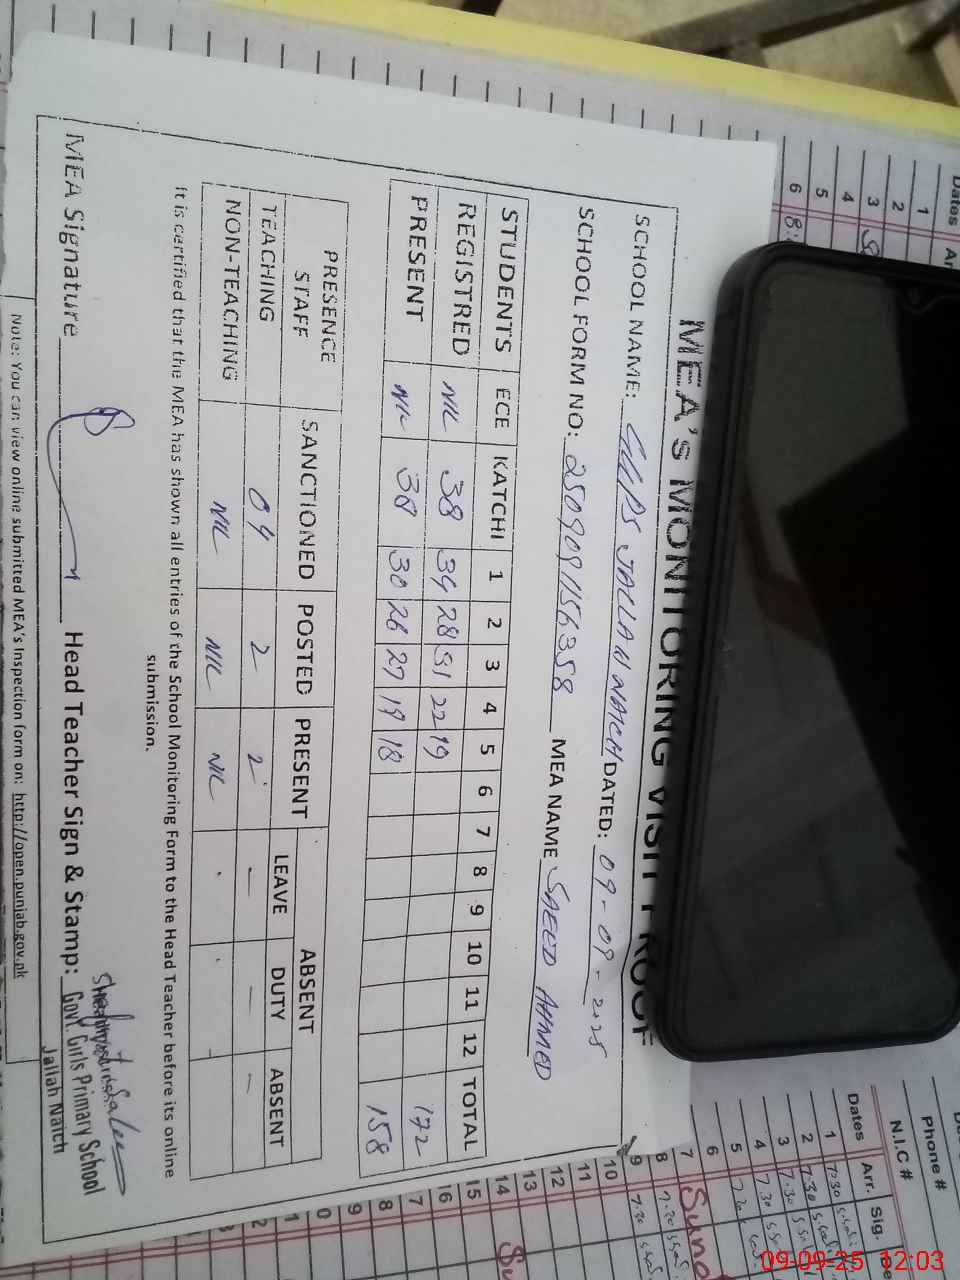 MEA'S MONITORING VISIT PROOF
SCHOOL NAME: GGPS JALLAH NAICH DATED: 09-09-2025
SCHOOL FORM NO: 2509091156358 MEA NAME SAEED AHMED
STUDENTS ECE KATCHI 1 2 3 4 5 6 7 8 9 10 11 12 TOTAL
REGISTRED NIL 38 34 28 31 22 19 172
PRESENT NIL 38 30 26 27 19 18 158
PRESENCE STAFF SANCTIONED POSTED PRESENT ABSENT
LEAVE DUTY ABSENT
TEACHING 04 2 2 - - -
NON-TEACHING NIL NIL NIL
It is certified that the MEA has shown all entries of the School Monitoring Form to the Head Teacher before its online
submission.
MEA Signature Head Teacher Sign & Stamp: Govt. Girls Primary School
Jallah Naich
Note: You can view online submitted MEA's Inspection form on: http://open.punjab.gov.pk
Dates
1
2
3
4
5
6
Phone #
N.I.C #
Dates Arr. Sig.
1 7:30
2 7:30
3 7:30
4 7:30
5 7:30
6
7
8 7:30
9 7:30
10
11
12
13
14
15
16
17
09-09-25 12:03